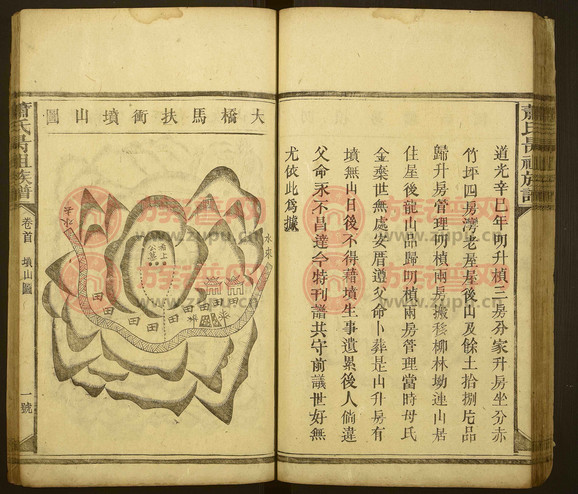 道光辛巳年明升楨三房分家升房坐分赤
竹坪四房灣老屋屋後山及餘土拾捌戹品
歸升房管理明楨兩房搬移柳林坳連山居
住屋後龍山品歸明楨兩房管理當時母氏
金棄世無處安厝遵父命卜葬是山升房有
墳無山日後不得藉墳生事遺累後人倘違
父命永不昌達今特刊譜共守前議世好無
尤依此為據
大橋馬扶衝墳山圖
水來
水去
公墓
田
田
田
田
田
蕭氏尋祖族譜
卷首
墳山圖
一號
族譜網
www.zupu.cn